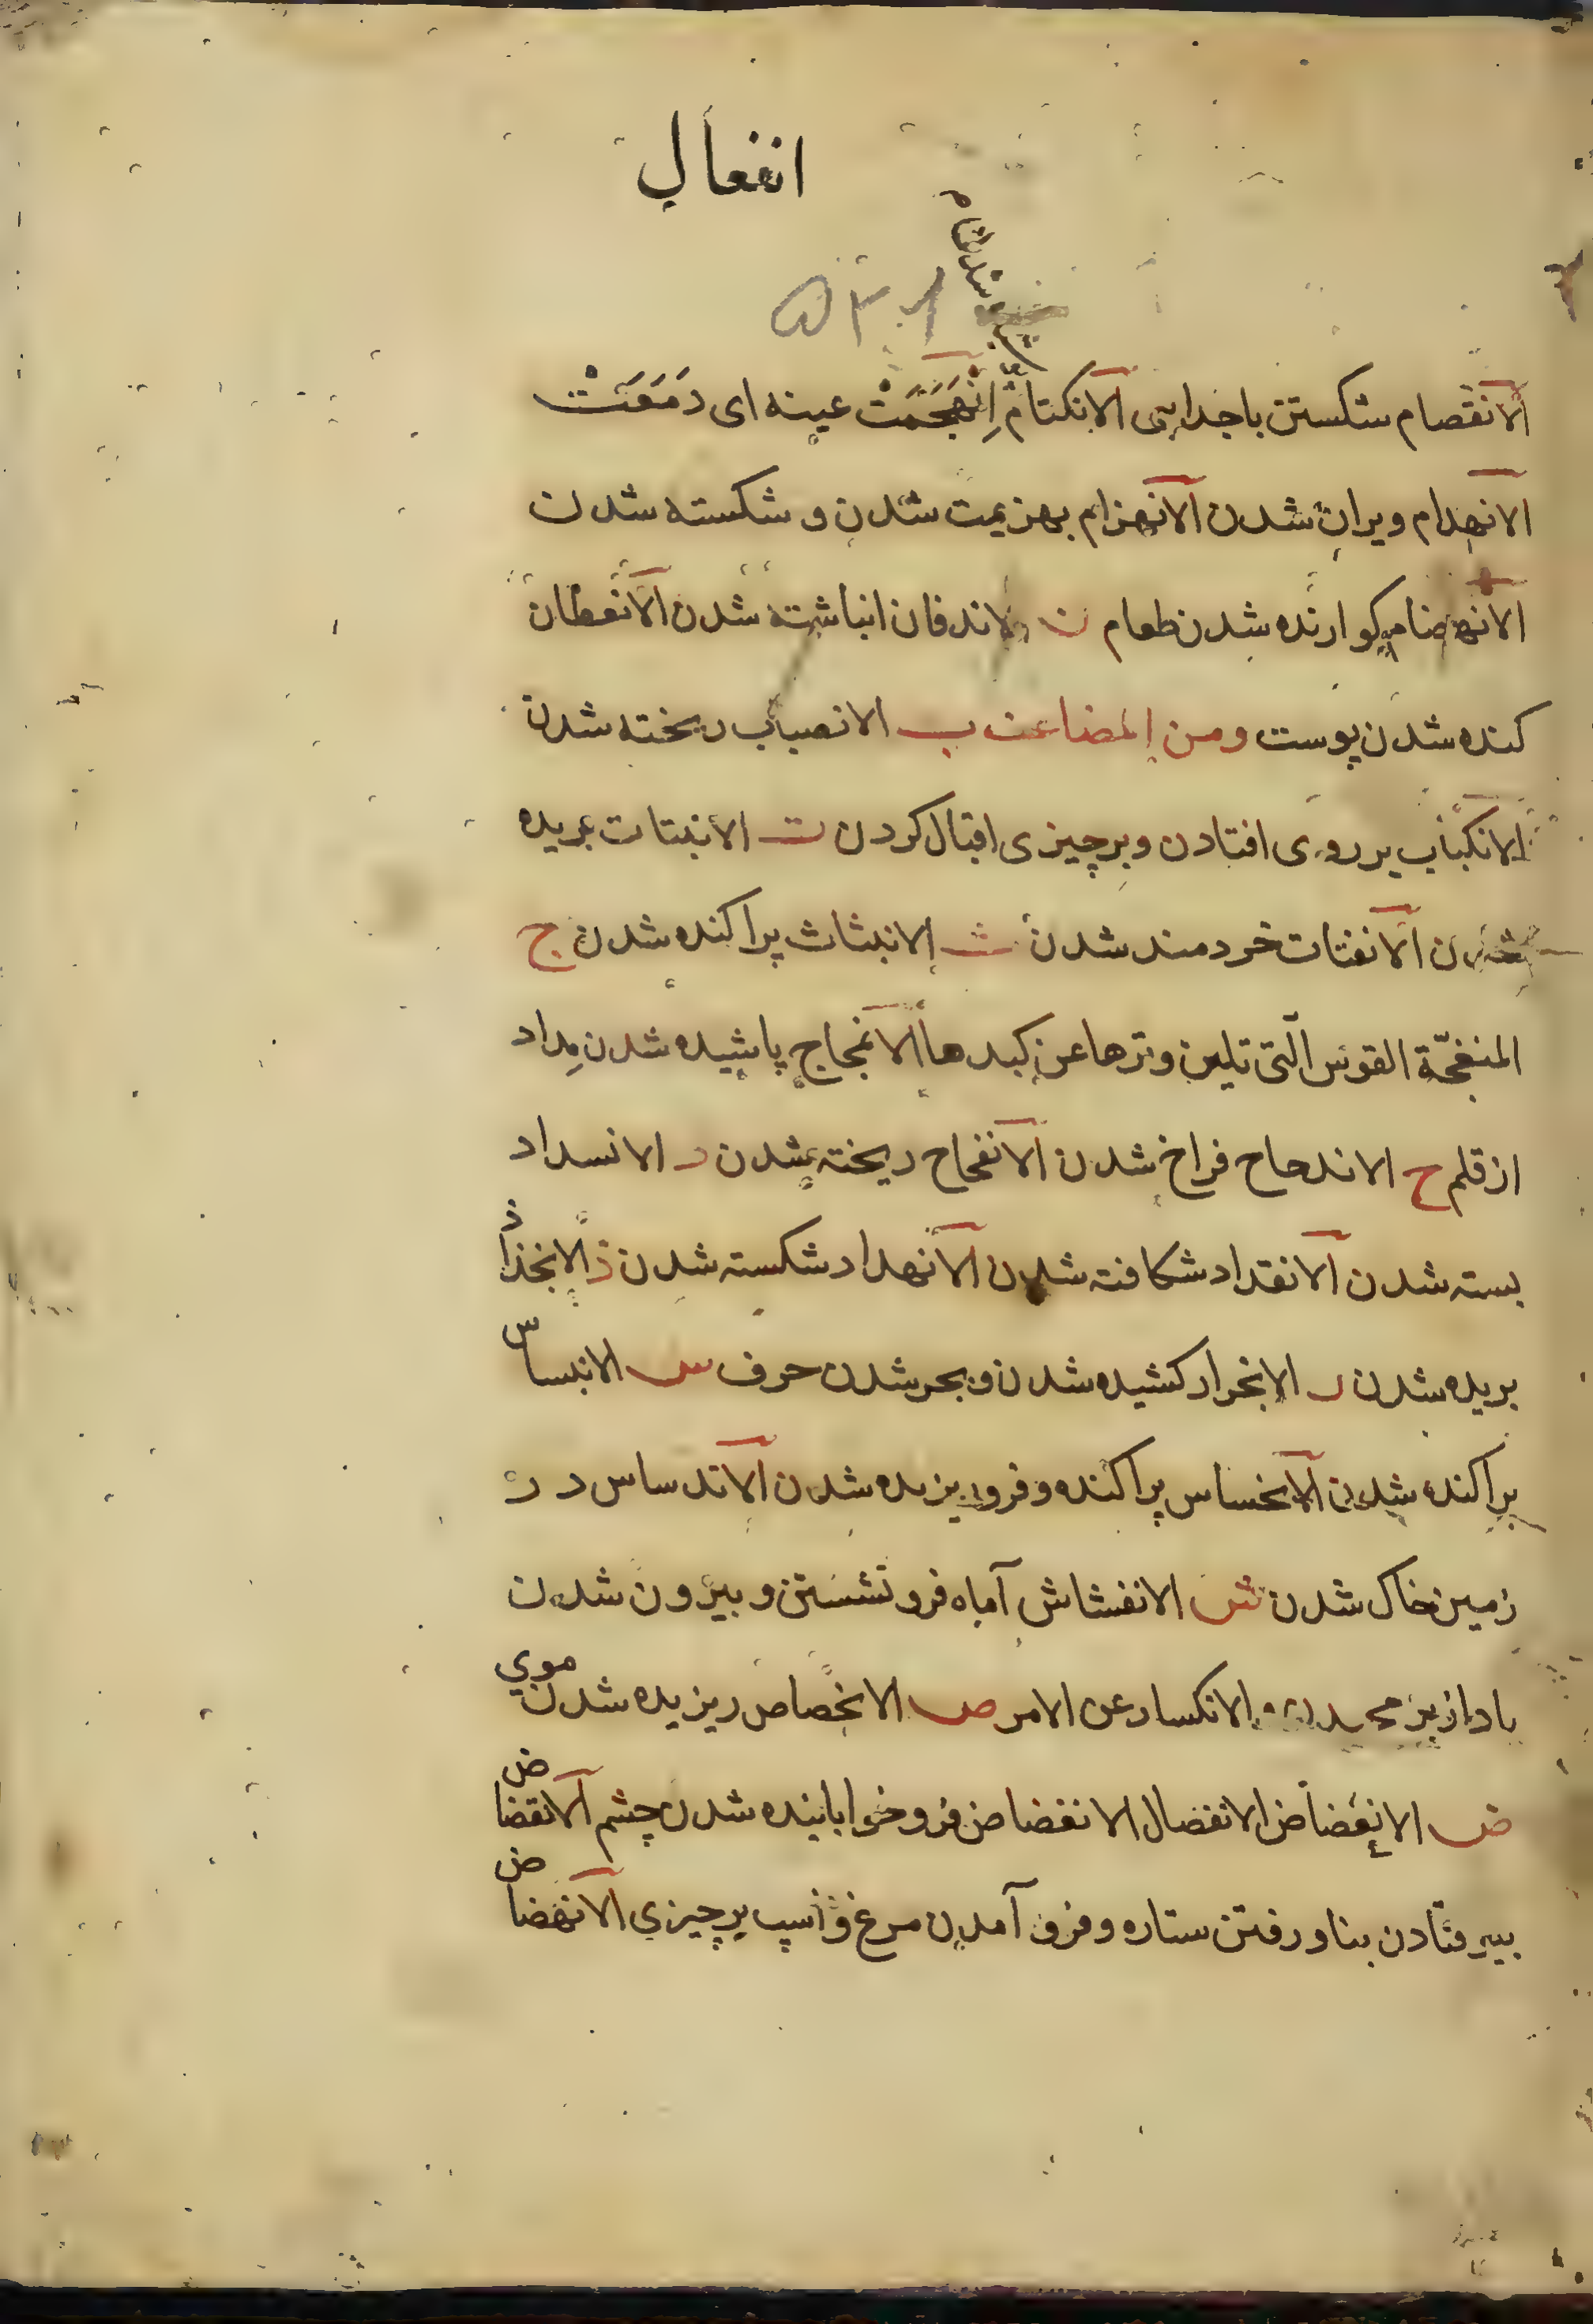 انفعال
۵۳۰۱
الانقصام شکستن باجدایی الانکتام اِنْهَجَمَتْ عینه ای دَمَعَتْ
الانهدام ویران شدن الانهزام بهزیمت شدن و شکسته شدن
الانهضام کوارنده شدن طعام ن الاندفان انباشته شدن الانعطان
کنده شدن پوست ومن المضاعف ب الانصباب ریخته شدن
الانکباب بر روی افتادن و بر چیزی اقبال کردن ت الانبتات بریده
شدن الانفتات خردمند شدن ث الانبثاث پراکنده شدن ج
المنفجّة القوس الّتی تلین وترها عن کبدها الانمجاج پاشیده شدن مِداد
از قلم ح الاندحاح فراخ شدن الانفحاح ریخته شدن د الانسداد
بسته شدن الانقداد شکافته شدن الانهداد شکسته شدن ذ الانخذاذ
بریده شدن ر الانجرار کشیده شدن و بجر شدن حرف س الانبساس
پراکنده شدن الانخساس پراکنده و فروریزیده شدن الاندساس در
زمین خاک شدن ش الانفشاش آماه فرو نشستن و بیرون شدن
باد از الانکسار عن الامر ص الانحصاص ریزیده شدن موي
ض الانغضاض الانفضال الانغضاض فروخوابانیده شدن چشم الانقضاض
بیوفتادن بنا و رفتن ستاره و فرو آمدن مرغ و اسپ بر چیزي الانهضاض